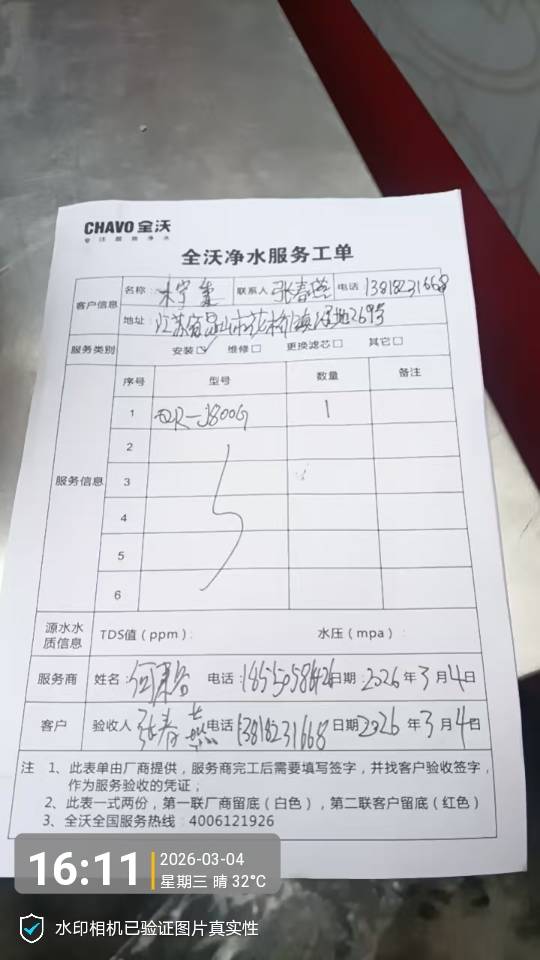 CHAVO 全沃
专注能效净水
全沃净水服务工单
客户信息 名称: 联系人 张春燕 电话 13818231668
地址: 江苏省昆山市花桥镇绿地269号
服务类别 安装☑ 维修□ 更换滤芯□ 其它□
服务信息 序号 型号 数量 备注
1 QR-J800G 1
2
3
4
5
6
源水水质信息 TDS值(ppm): 水压(mpa):
服务商 姓名: 电话: 日期: 2026年3月4日
客户 验收人 张春燕 电话 13818231668 日期 2026年3月4日
注 1、此表单由厂商提供,服务商完工后需要填写签字,并找客户验收签字,
作为服务验收的凭证;
2、此表一式两份,第一联厂商留底(白色),第二联客户留底(红色)
3、全沃全国服务热线:4006121926
16:11 2026-03-04
星期三 晴 32°C
水印相机已验证图片真实性